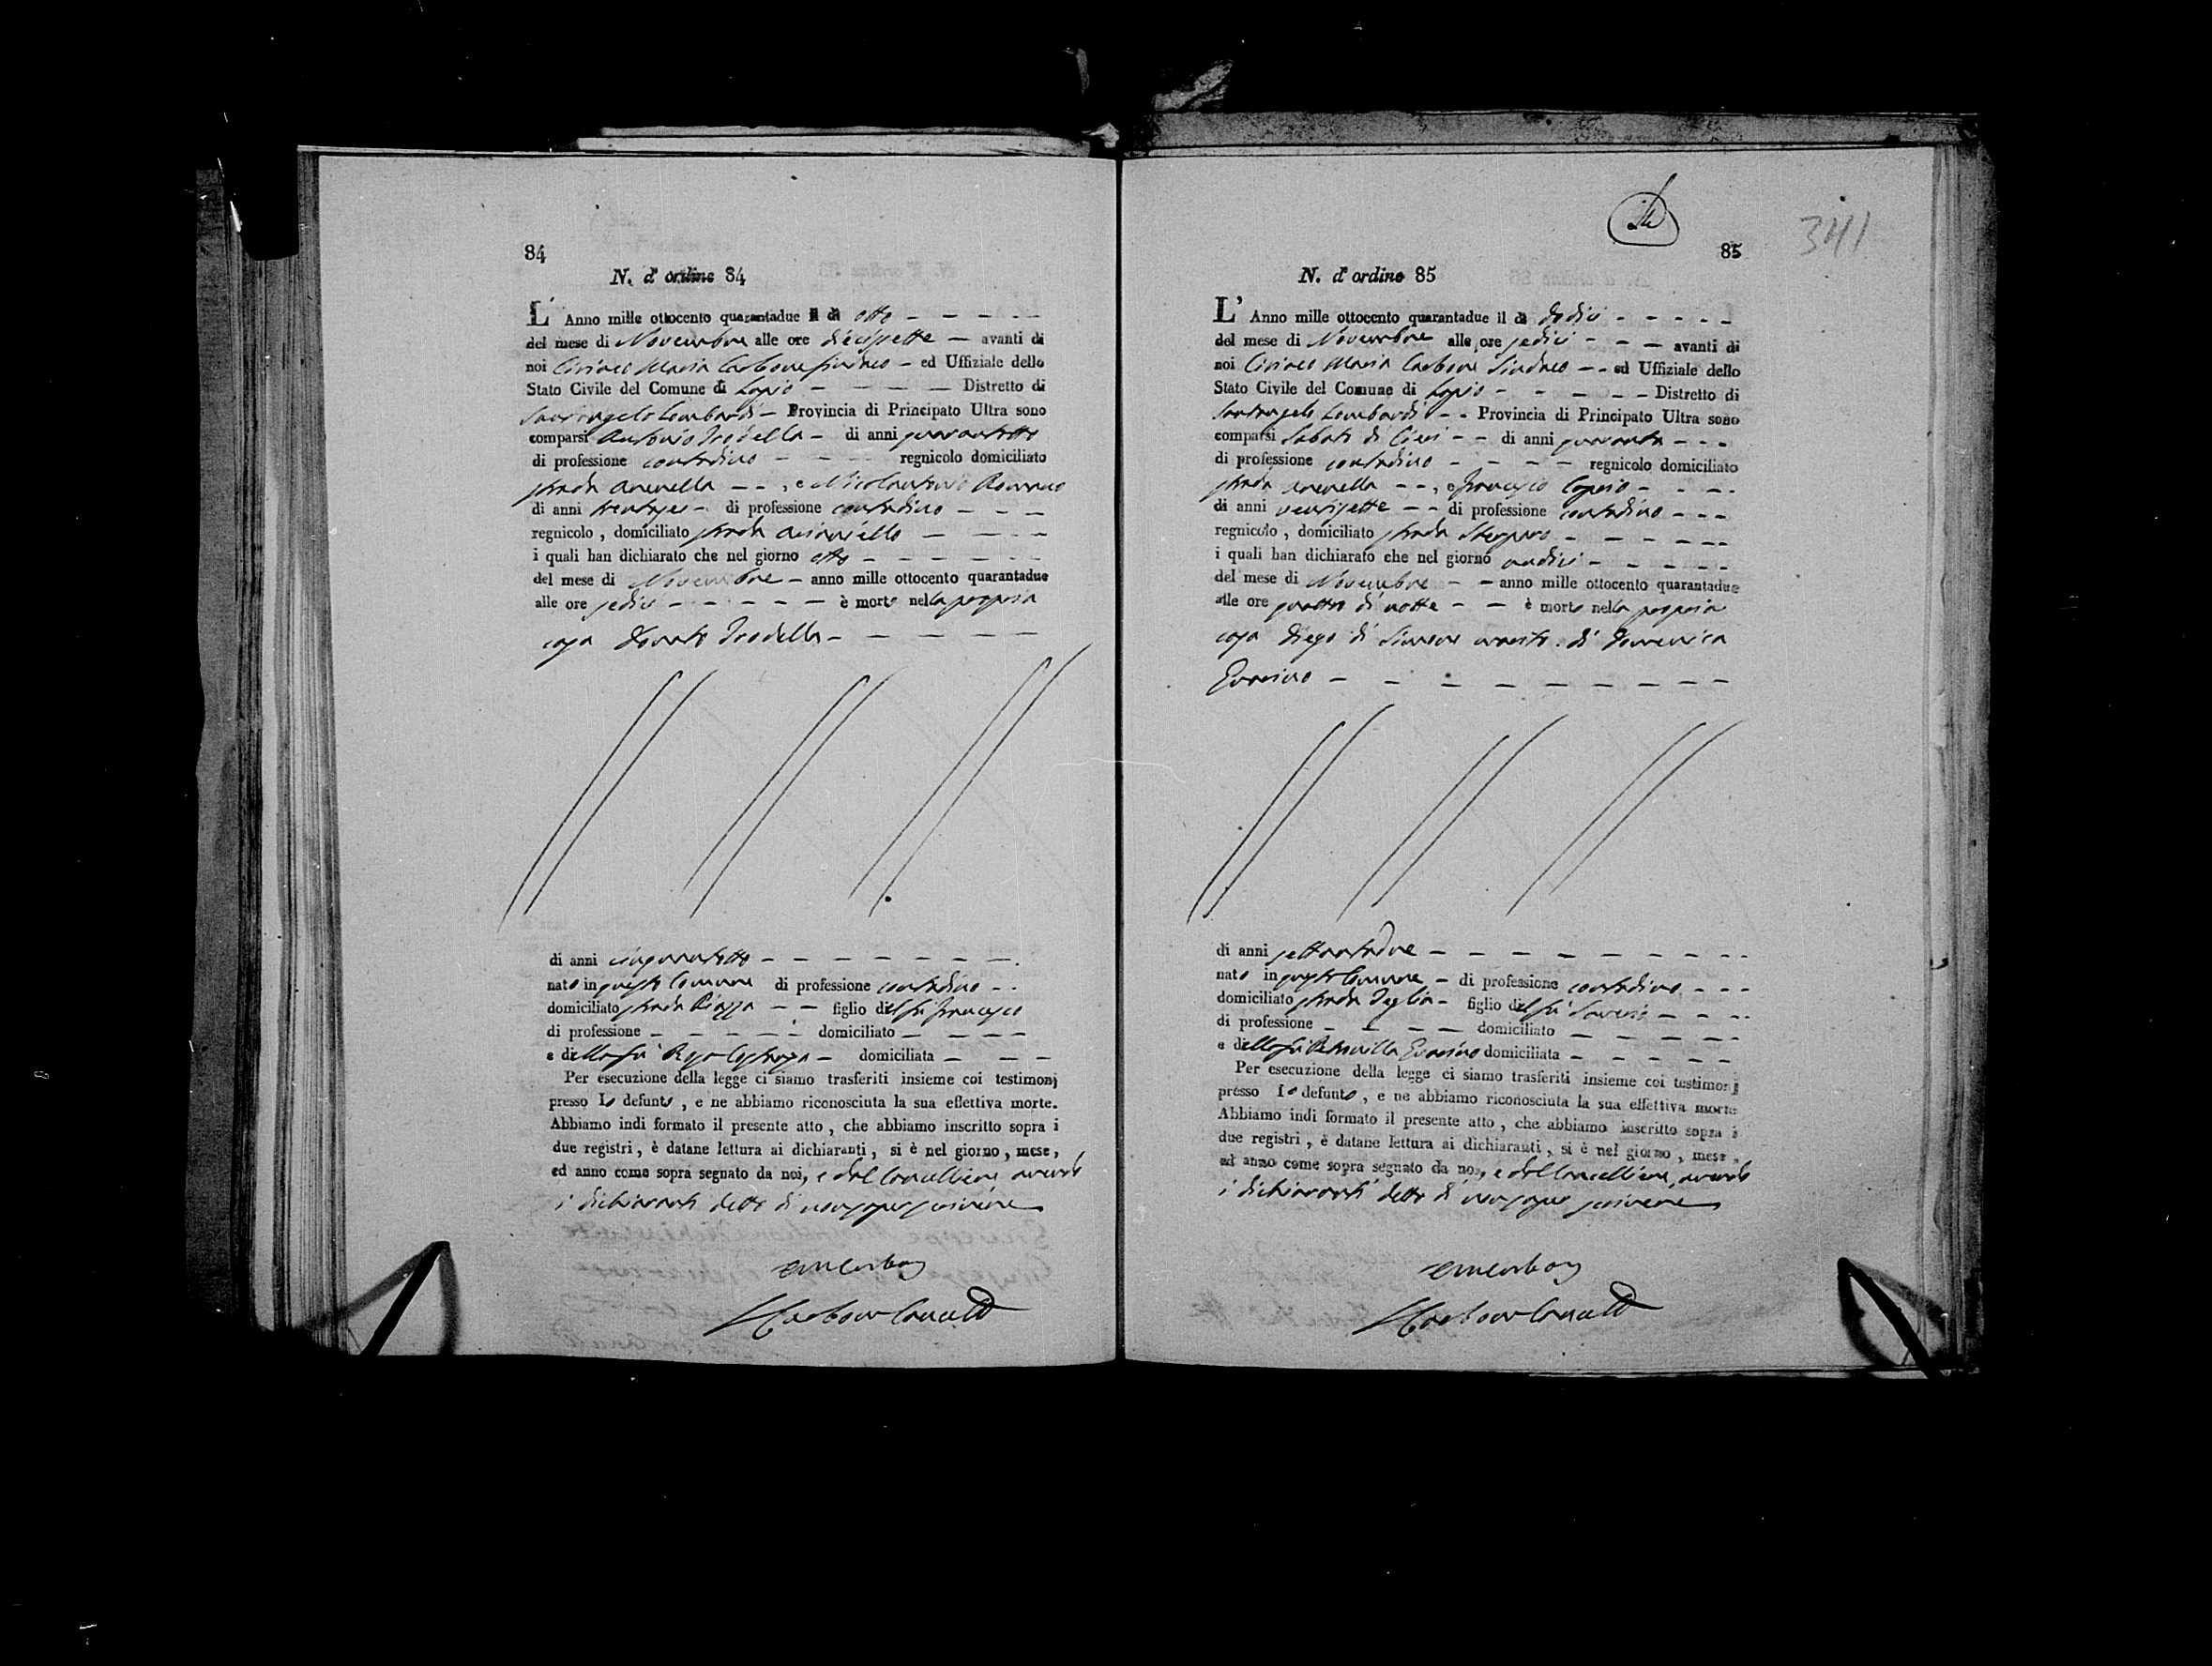 84
N. d'ordine 84
L' Anno mille ottocento quarantadue il dì otto
del mese di Novembre alle ore diecissette avanti di
noi Ciriaco Maria Carbone Sindaco ed Uffiziale dello
Stato Civile del Comune di Lapio Distretto di
Santangelo Lombardi Provincia di Principato Ultra sono
comparsi Antonio Trodella di anni quarantotto
di professione contadino regnicolo domiciliato
strada Arenella, e Nicolantonio Romano
di anni trentasei di professione contadino
regnicolo, domiciliato strada
i quali han dichiarato che nel giorno otto
del mese di Novembre anno mille ottocento quarantadue
alle ore sedici è morto nella propria
casa Donato Trodella
di anni cinquantotto
nato in questo Comune di professione contadino
domiciliato strada Piazza figlio del fu Francesco
di professione domiciliato
e della fu Rosa domiciliata
Per esecuzione della legge ci siamo trasferiti insieme coi testimonj
presso lo defunto, e ne abbiamo riconosciuta la sua effettiva morte.
Abbiamo indi formato il presente atto, che abbiamo inscritto sopra i
due registri, è datane lettura ai dichiaranti, si è nel giorno, mese,
ed anno come sopra segnato da noi, e dal Cancelliere, avendo
i dichiaranti detto di non saper scrivere
Carbone
341
85
N. d'ordine 85
L' Anno mille ottocento quarantadue il dì dodici
del mese di Novembre alle ore sedici avanti di
noi Ciriaco Maria Carbone Sindaco ed Uffiziale dello
Stato Civile del Comune di Lapio Distretto di
Santangelo Lombardi Provincia di Principato Ultra sono
comparsi Sabato di di anni quaranta
di professione contadino regnicolo domiciliato
strada Arenella, e Francesco
di anni ventisette di professione contadino
regnicolo, domiciliato strada
i quali han dichiarato che nel giorno undici
del mese di Novembre anno mille ottocento quarantadue
alle ore quattro di notte è morto nella propria
casa Diego di Simone marito di Domenica
di anni settantadue
nato in questo Comune di professione contadino
domiciliato strada Teglia figlio del fu Saverio
di professione domiciliato
e della fu Petronilla domiciliata
Per esecuzione della legge ci siamo trasferiti insieme coi testimonj
presso lo defunto, e ne abbiamo riconosciuta la sua effettiva morte
Abbiamo indi formato il presente atto, che abbiamo inscritto sopra i
due registri, è datane lettura ai dichiaranti, si è nel giorno, mese,
ed anno come sopra segnato da noi, e dal Cancelliere, avendo
i dichiaranti detto di non saper scrivere
Carbone